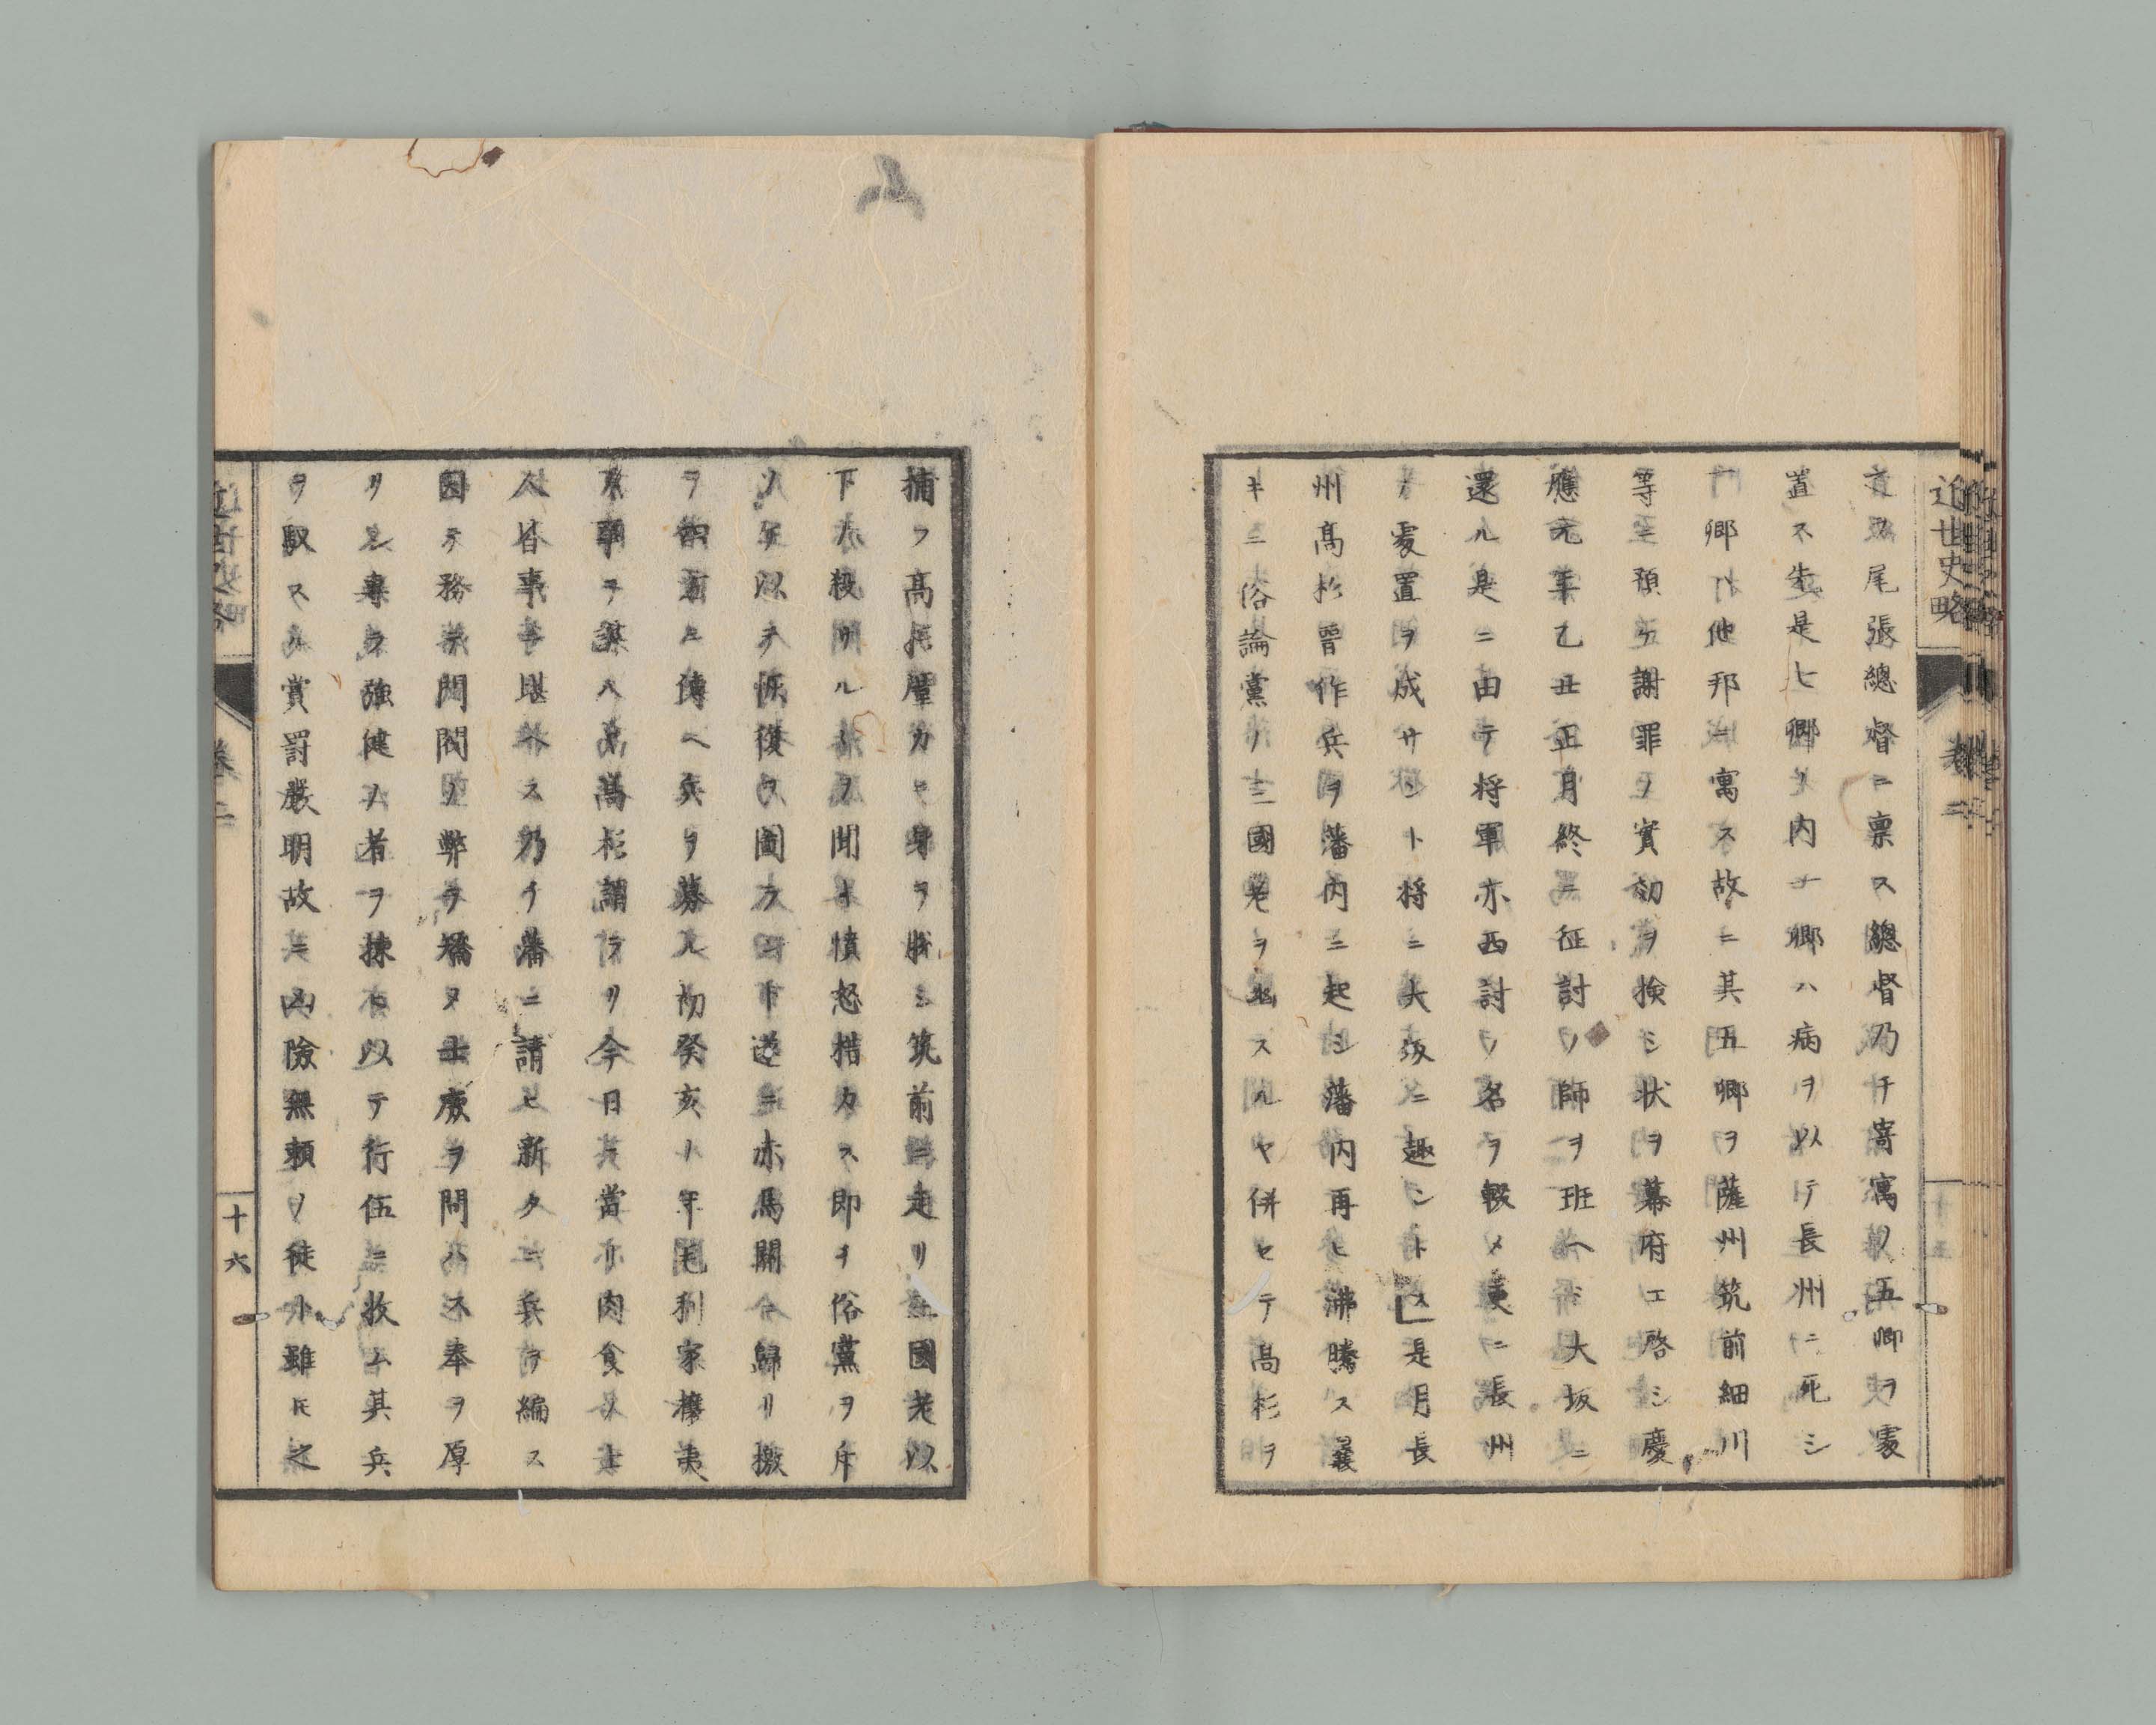 近世史略
卷二
尾張總督ニ禀ス總督乃チ寄寓ノ五卿ヲ處
置ス先是七卿ノ内一卿ハ病ヲ以テ長州ニ死シ
一卿ハ他邦ニ寓ス故ニ其五卿ヲ薩州筑前細川
等ニ預ケ謝罪ノ實効ヲ検シ状ヲ幕府エ啓シ慶
應元年乙丑正月終ニ征討ノ師ヲ班ヘシ大坂ニ
還ル是ニ由テ将軍亦西討ノ名ヲ輟メ更ニ長州
ノ處置ヲ成サント将ニ大坂ニ趣ントス是月長
州高杉晋作兵ヲ藩内ニ起シ藩内再ヒ沸騰ス曩
キニ俗論黨ノ三國老ヲ幽スルヤ併セテ高杉ヲ
捕フ高杉 力ヒ身ヲ脱シ筑前ニ走リ三國老以
下ヲ殺サルヽヲ聞キ憤怒措カス即チ俗黨ヲ斥
ソケ以テ恢復ヲ圖ラント遂ニ赤馬關ニ歸リ檄
ヲ四方ニ傳ヘ兵ヲ募ル初癸亥ノ年毛利家攘夷
ノ事ヲ謀ハル高杉謂ラク今日ニ當リ肉食ノ士
人皆事ニ堪ヘス乃チ藩ニ請ヒ新タニ兵ヲ編ス
因テ務テ門閥ノ弊ヲ矯メ士庶ヲ問ハス奉ヲ厚
クシ專ラ強健ノ者ヲ揀ヒ以テ行伍ニ收ム其兵
ヲ馭スル賞罰嚴明故ニ凶險無頼ノ徒ト雖𪜈之
十六